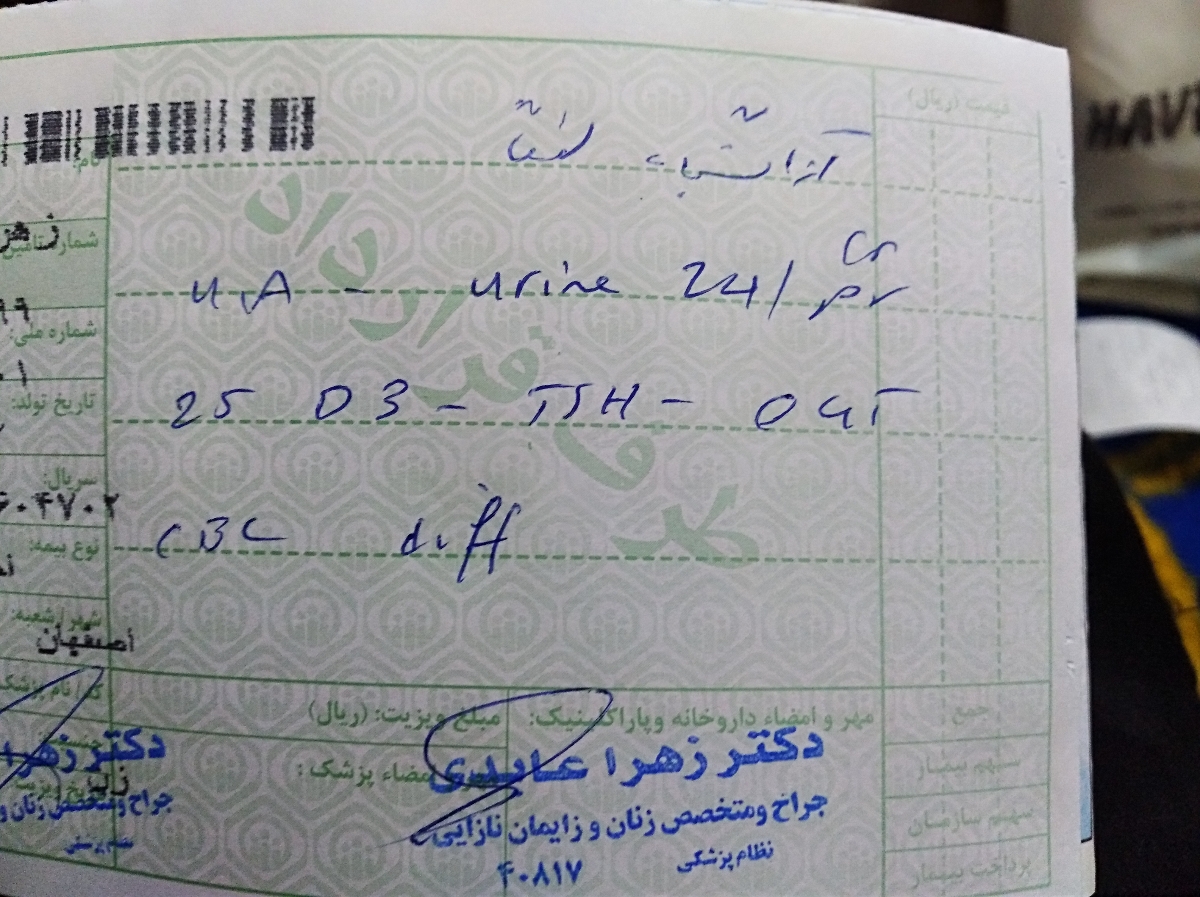 قیمت (ریال)
آزمایشات لطفا
U,A - urine 24/ Cr pr
25 D3 - TSH - OGT
CBC diff
کد فاقد ارزش
نام:
زهر
شماره تامین
۹۹
شماره ملی:
۰۱
تاریخ تولد:
سریال:
۶۰۴۷۰۲
نوع بیمه:
شهر/شعبه:
اصفهان
کد/نام پزشک
مهر و امضاء داروخانه و پاراکلینیک:
مبلغ ویزیت: (ریال)
مضاء پزشک:
جمع
سهم بیمار
سهم سازمان
پرداخت بیمار
دکتر زهرا عابدی
جراح و متخصص زنان و زایمان نازایی
نظام پزشکی
۴۰۸۱۷
دکتر زهرا
جراح و متخصص زنان و
HAV